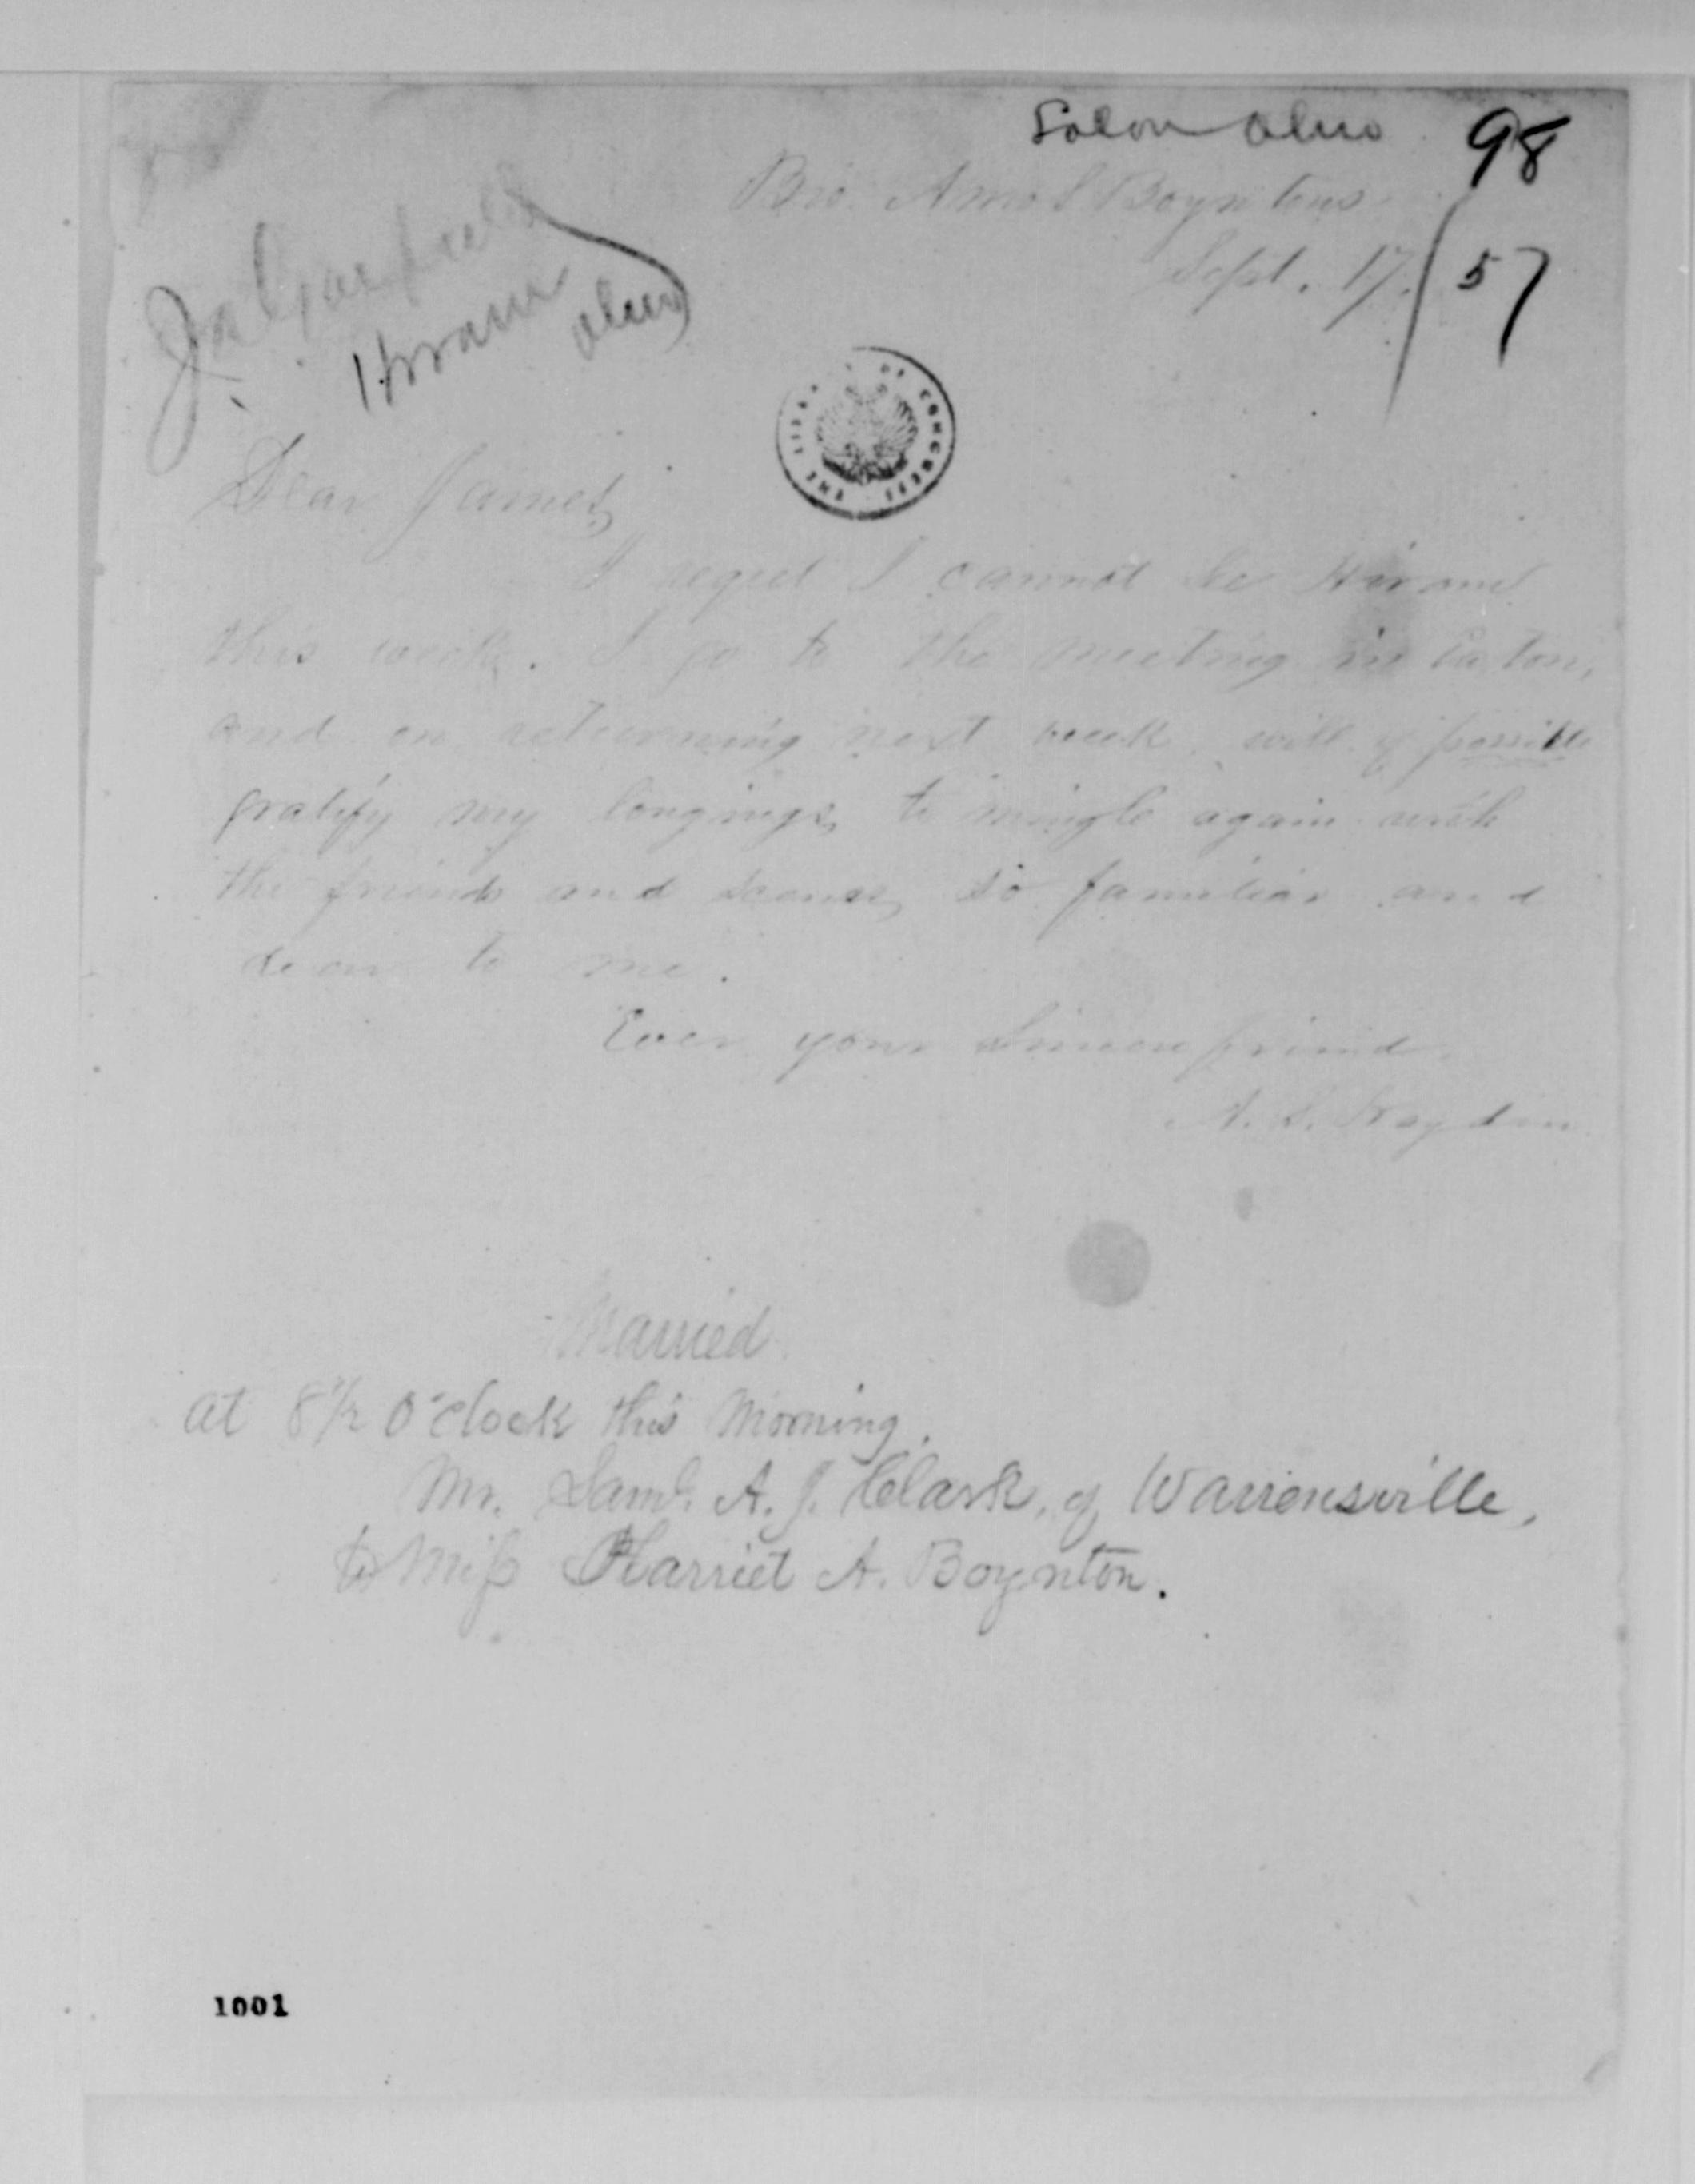 Solon Ohio 98
Bro. Amos Boyntons
Sept. 17, / 57
Ja Garfield
Hiram
Ohio
THE LIBRARY OF CONGRESS
Dear James,
I regret I cannot see Hiram
this week. I go to the meeting in Eaton,
and on returning next week, will if possible
gratify my longings, to mingle again with
the friends and scenes, so familiar and
dear to me.
Ever your sincere friend
A. S. Hayden
Married
at 8 1/2 O'clock this Morning,
Mr. Saml. A. J. Clark, of Warrensville,
to Miss Harriet A. Boynton.
1001